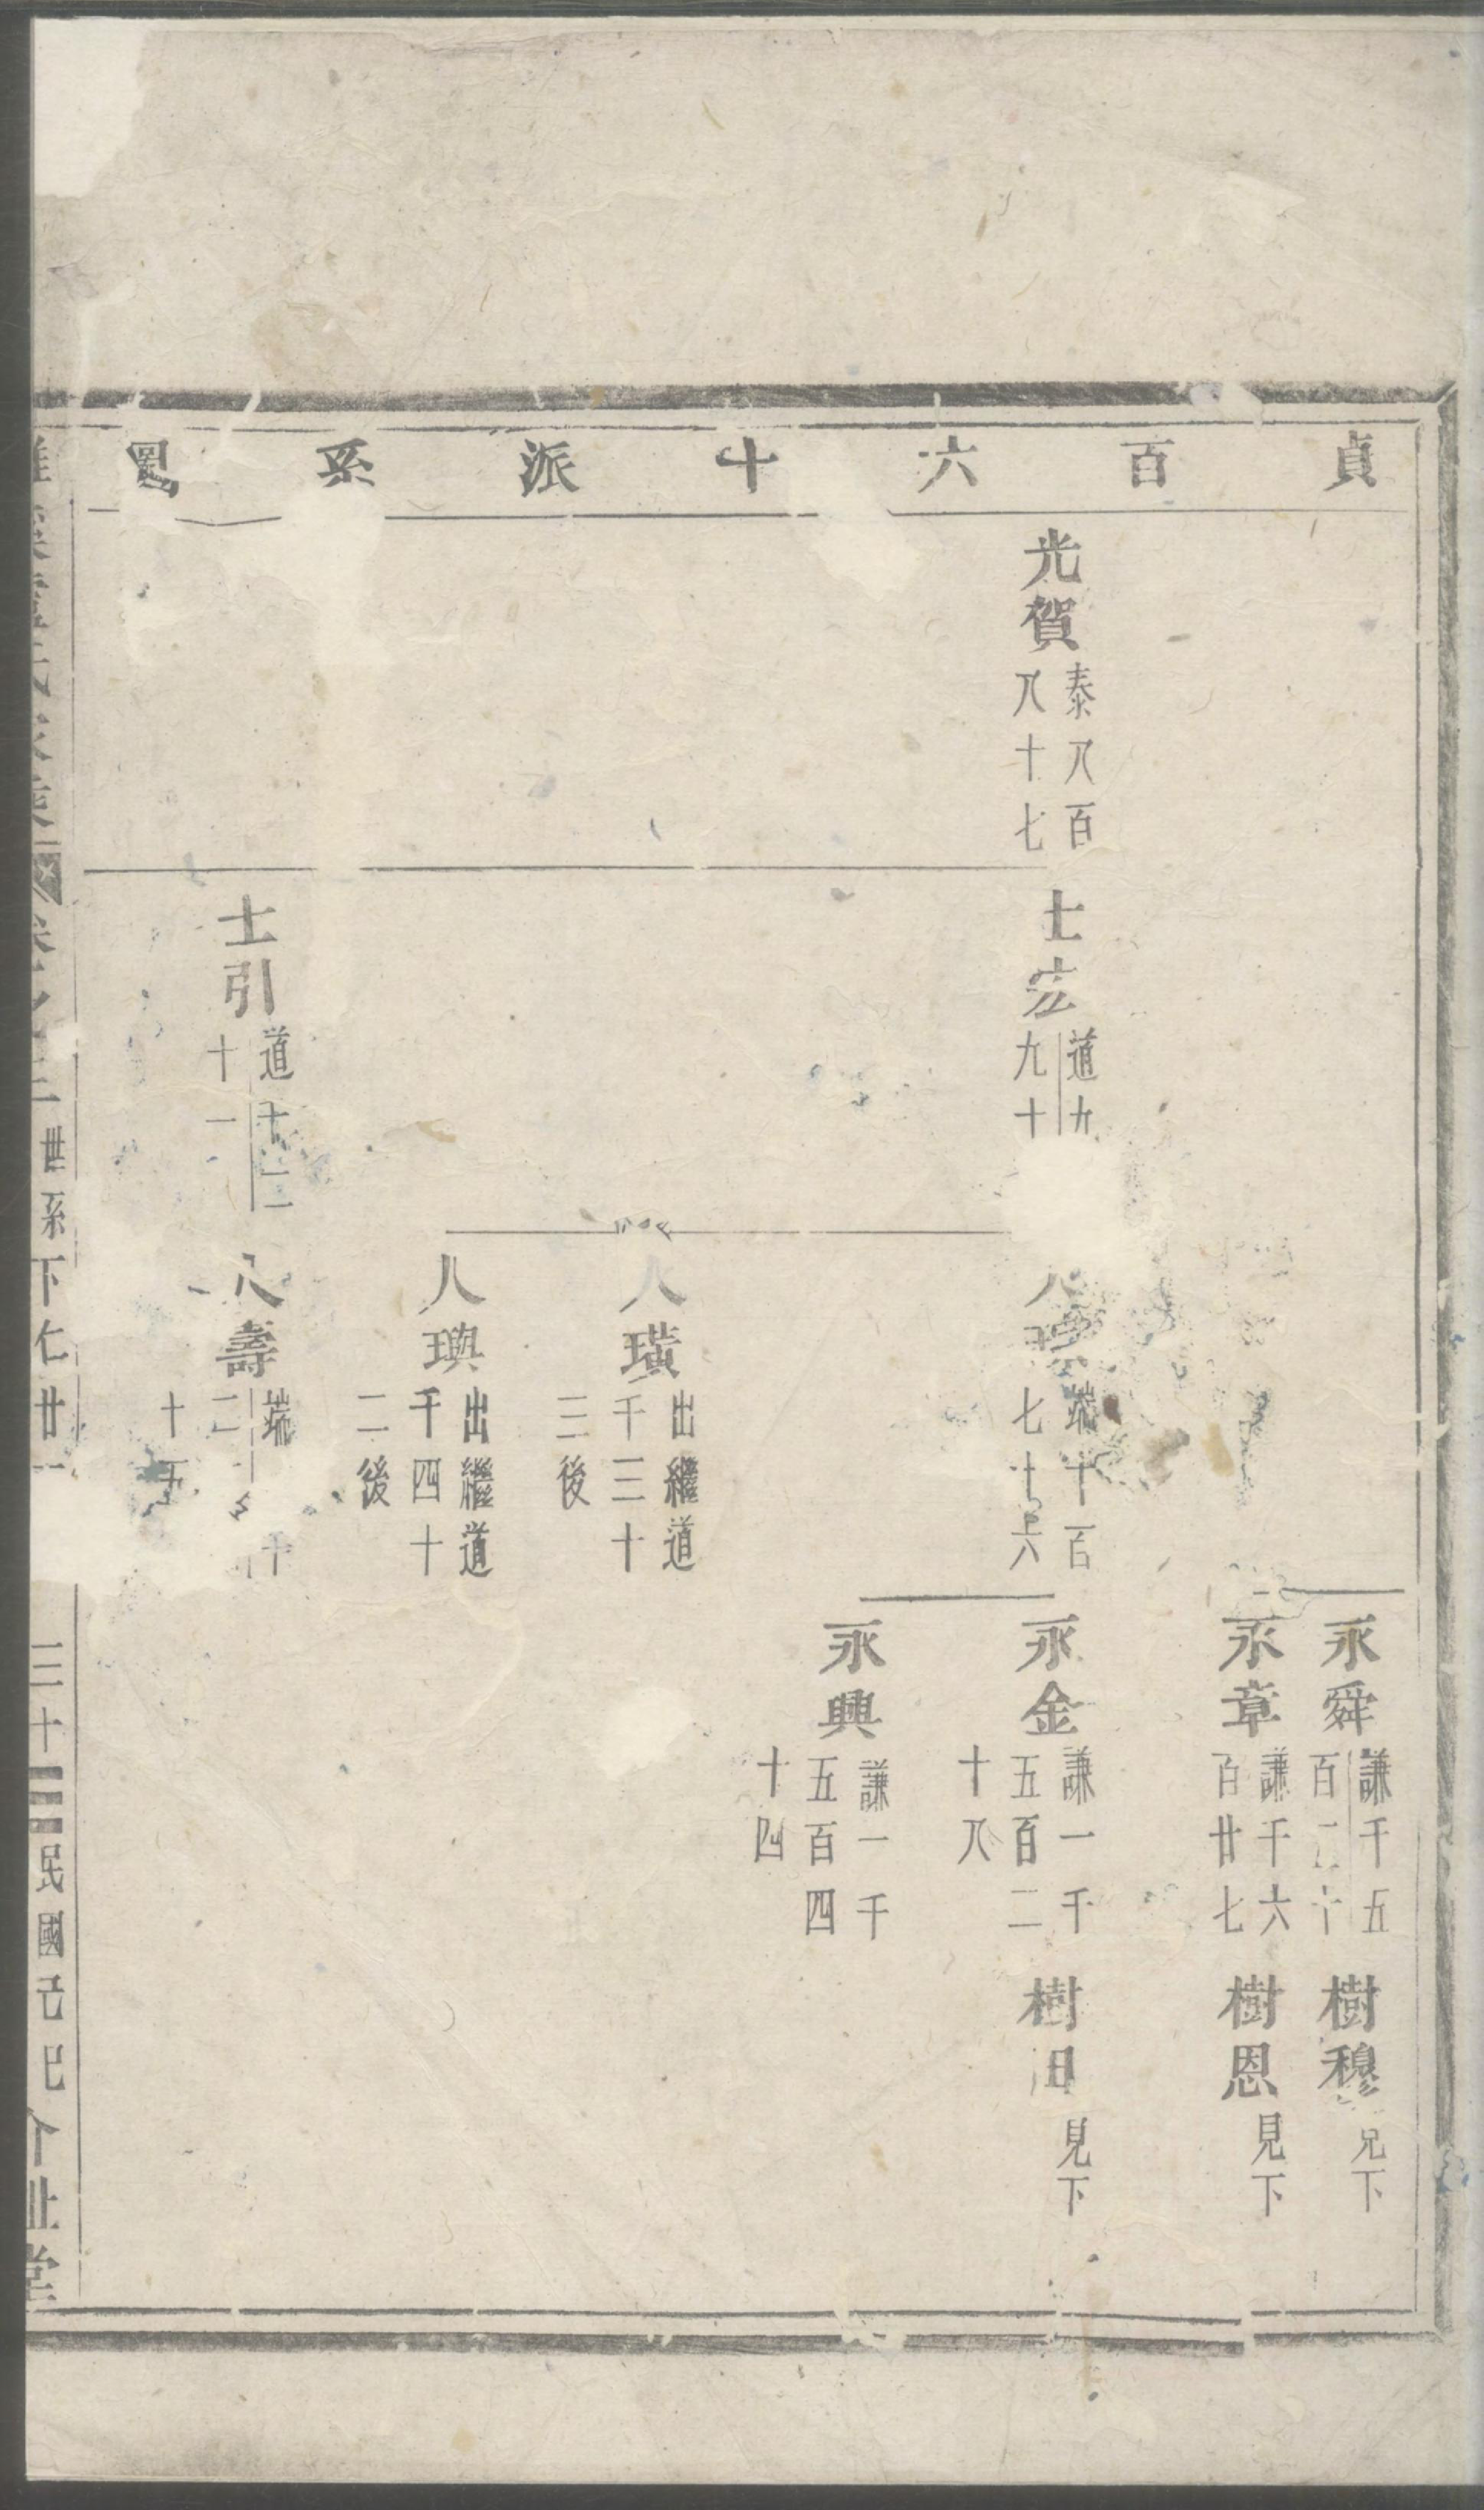 貞百六十派系圖
光賀
泰八百
八十七
士宏
道九
九十
士引
道十二
十一
人
端十百
七十六
人璜
出繼道
千三十
三後
人璵
出繼道
千四十
二後
人壽
端
十五
永舜
謙千五
百二十
永章
謙千六
百廿七
永金
謙一千
五百二
十八
永興
謙一千
五百四
十四
樹穆
見下
樹恩
見下
樹
見下
世系下仁廿一
三十三
民國己巳